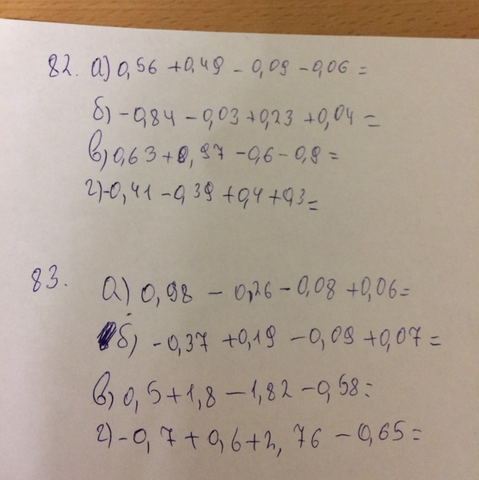 82. а) 0,56 + 0,49 - 0,09 - 0,06 =
б) -0,84 - 0,03 + 0,23 + 0,04 =
в) 0,63 + 0,97 - 0,6 - 0,9 =
г) -0,41 - 0,39 + 0,4 + 0,3 =
83. а) 0,98 - 0,26 - 0,08 + 0,06 =
б) -0,37 + 0,19 - 0,09 + 0,07 =
в) 0,5 + 1,8 - 1,82 - 0,58 =
г) -0,7 + 0,6 + 2,76 - 0,65 =